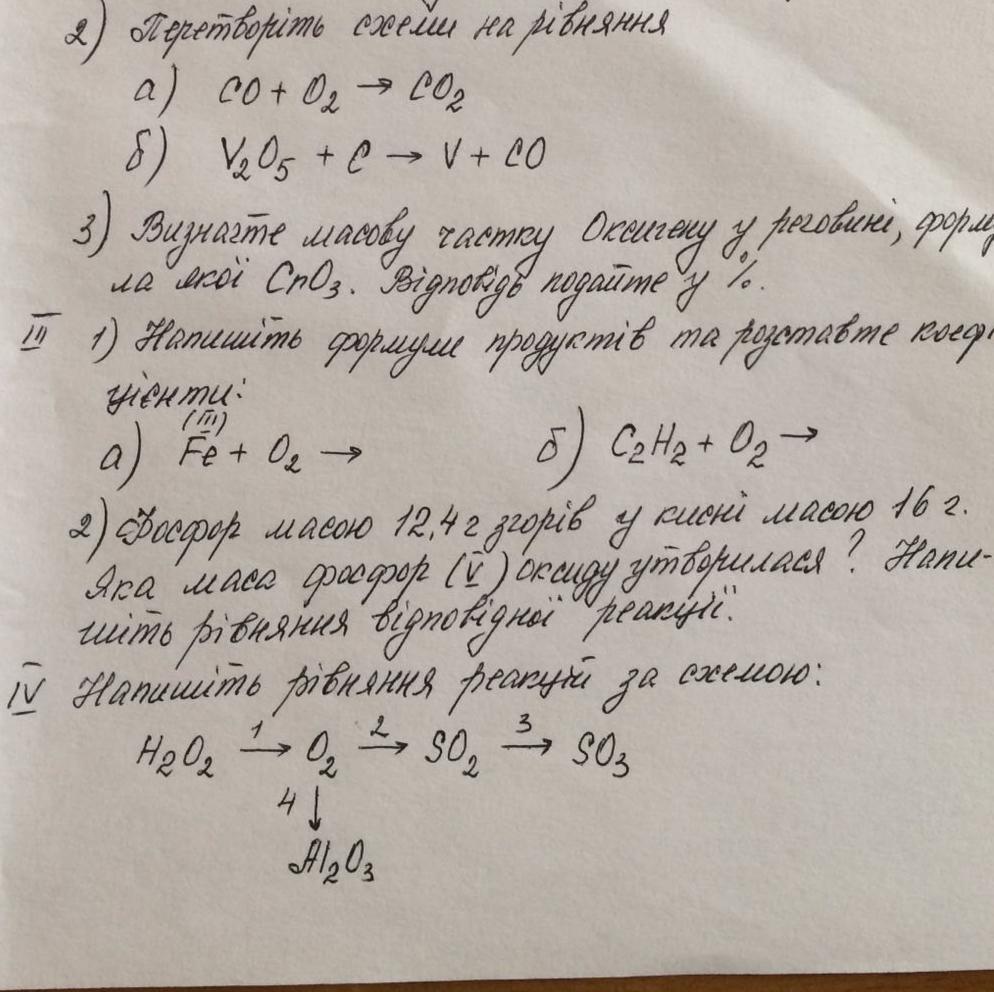 2) Перетворіть схеми на рівняння
а) CO + O₂ → CO₂
б) V₂O₅ + C → V + CO
3) Визначте масову частку Оксигену у речовині, форму
ла якої CrO₃. Відповідь подайте у %.
III 1) Напишіть формули продуктів та розставте коефі
цієнти:
(III)
а) Fe + O₂ → б) C₂H₂ + O₂ →
2) Фосфор масою 12,4 г згорів у кисні масою 16 г.
Яка маса фосфор (V) оксиду утворилася? Напи-
шіть рівняння відповідної реакції.
IV Напишіть рівняння реакцій за схемою:
1 2 3
H₂O₂ → O₂ → SO₂ → SO₃
4 ↓
Al₂O₃